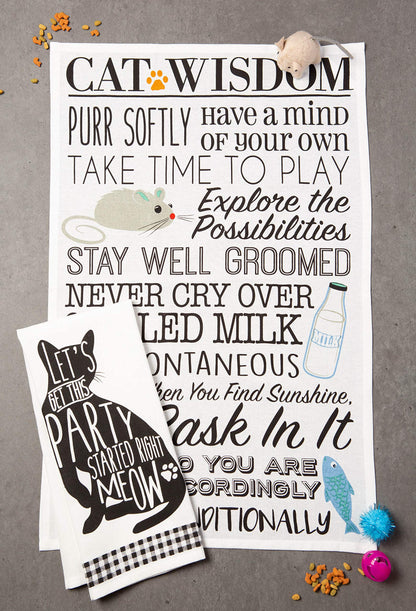 CAT WISDOM
PURR SOFTLY
Have a mind
of your own
TAKE TIME TO PLAY
Explore the
Possibilities
STAY WELL GROOMED
NEVER CRY OVER
LED MILK
MILK
ONTANEOUS
en You Find Sunshine,
Bask In It
O YOU ARE
CORDINGLY
DITIONALLY
LET'S
GET THIS
PARTY
STARTED RIGHT
MEOW